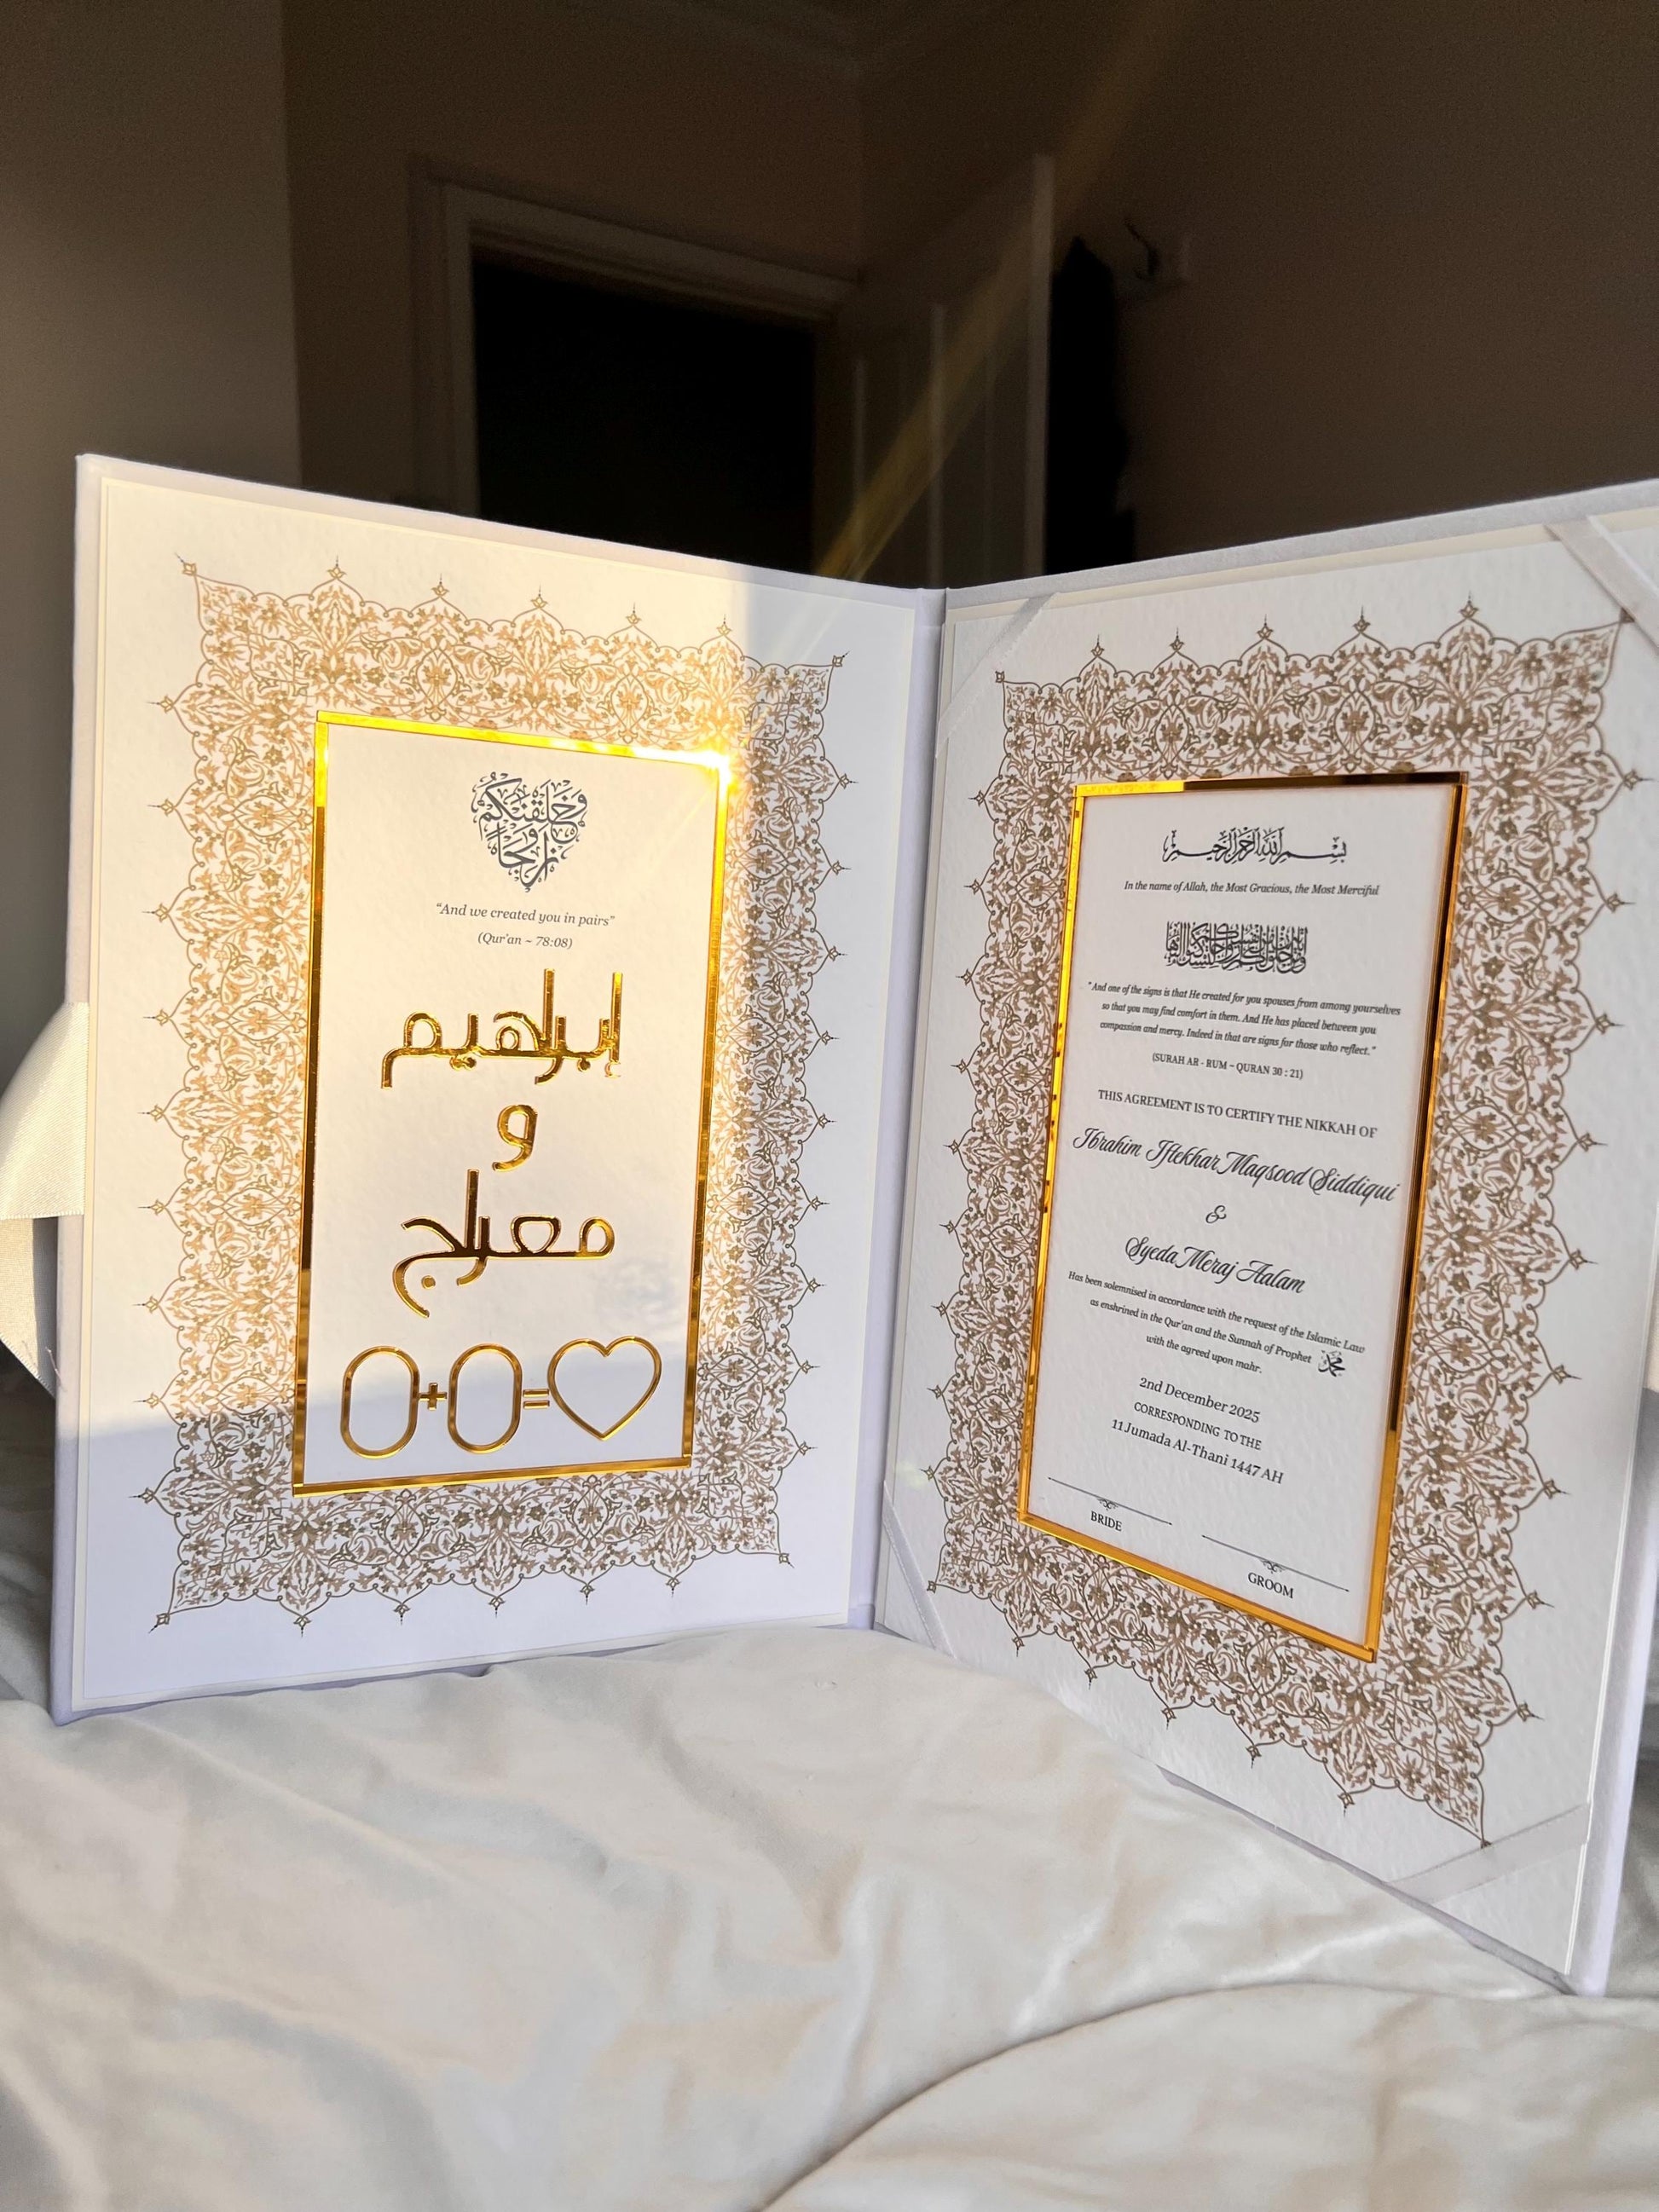 وَخَلَقْنَاكُمْ
أَزْوَاجًا
“And we created you in pairs”
(Qur'an ~ 78:08)
إبراهيم
و
معراج
0+0=♡
بسم الله الرحمن الرحيم
In the name of Allah, the Most Gracious, the Most Merciful
“And one of the signs is that He created for you spouses from among yourselves
so that you may find comfort in them. And He has placed between you
compassion and mercy. Indeed in that are signs for those who reflect.”
(SURAH AR - RUM ~ QURAN 30 : 21)
THIS AGREEMENT IS TO CERTIFY THE NIKKAH OF
Ibrahim Iftekhar Maqsood Siddiqui
&
Syeda Meraj Aalam
Has been solemnised in accordance with the request of the Islamic Law
as enshrined in the Qur'an and the Sunnah of Prophet محمد
with the agreed upon mahr.
2nd December 2025
CORRESPONDING TO THE
11 Jumada Al-Thani 1447 AH
BRIDE
GROOM